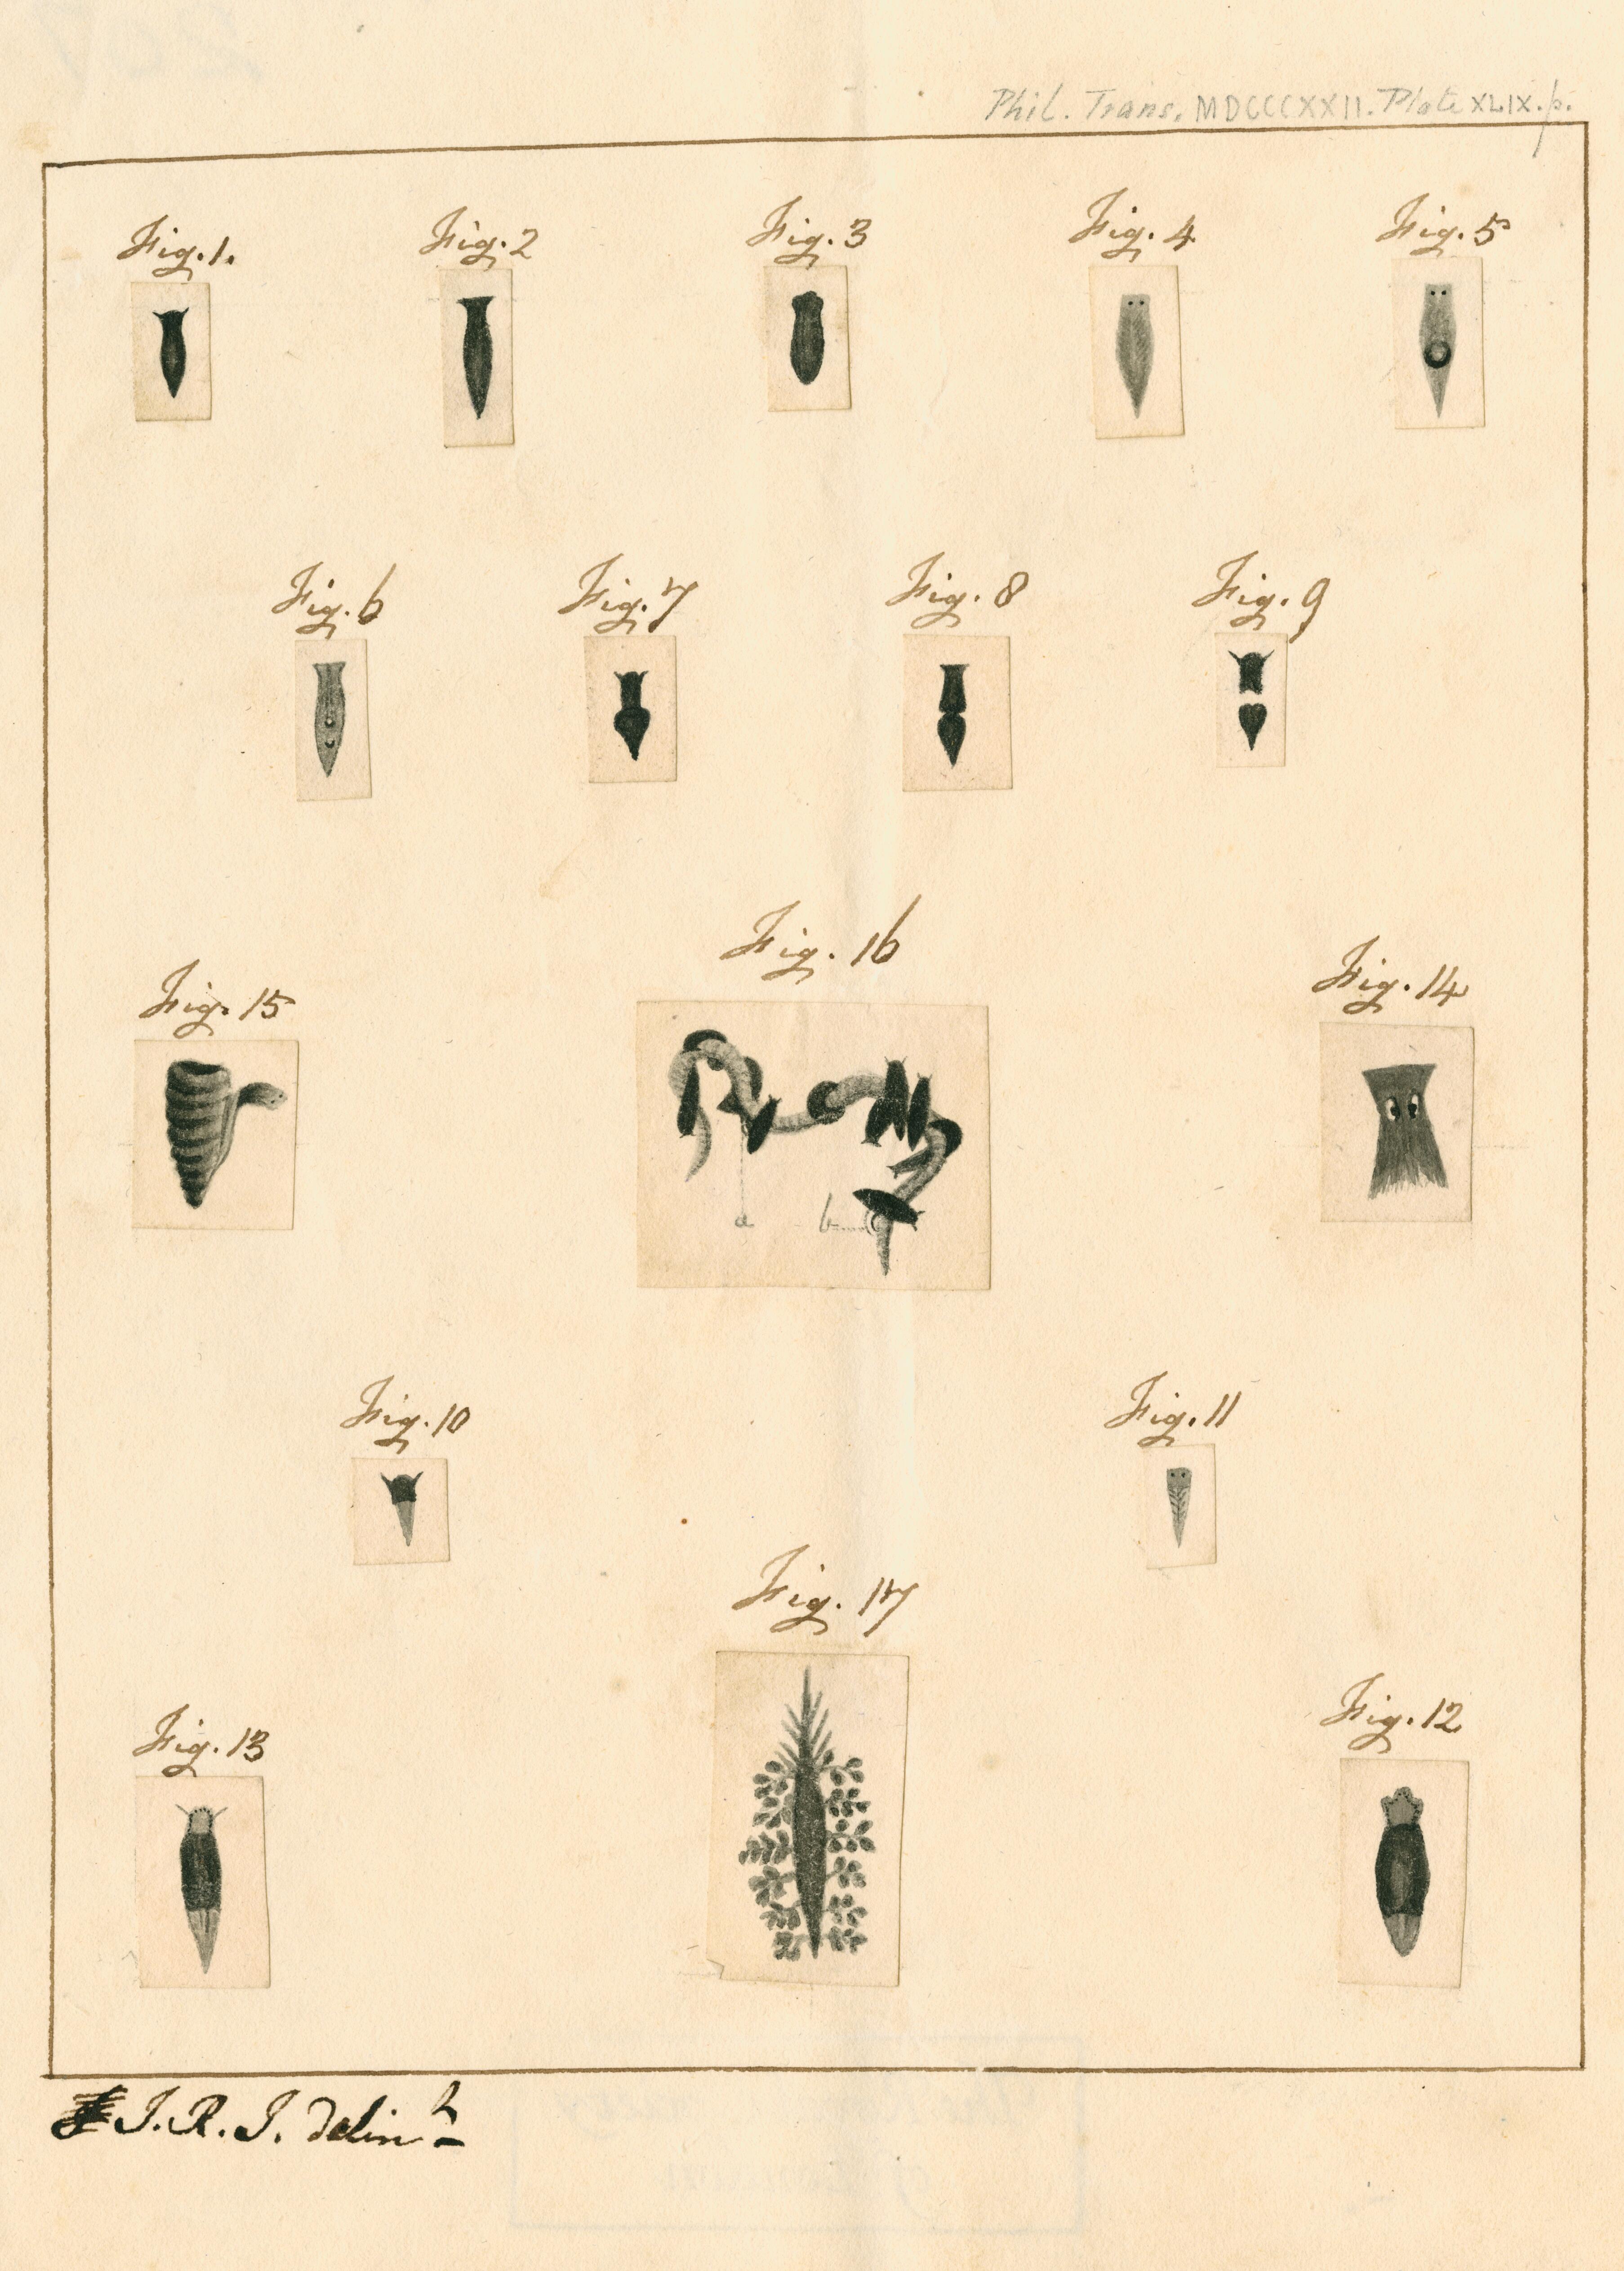 Phil. Trans. MDCCCXXII. Plate XLIX. p.
Fig. 1.
Fig. 2
Fig. 3
Fig. 4
Fig. 5
Fig. 6
Fig. 7
Fig. 8
Fig. 9
Fig. 15
Fig. 16
Fig. 14
a b
Fig. 10
Fig. 11
Fig. 17
Fig. 13
Fig. 12
J. R. J. delint